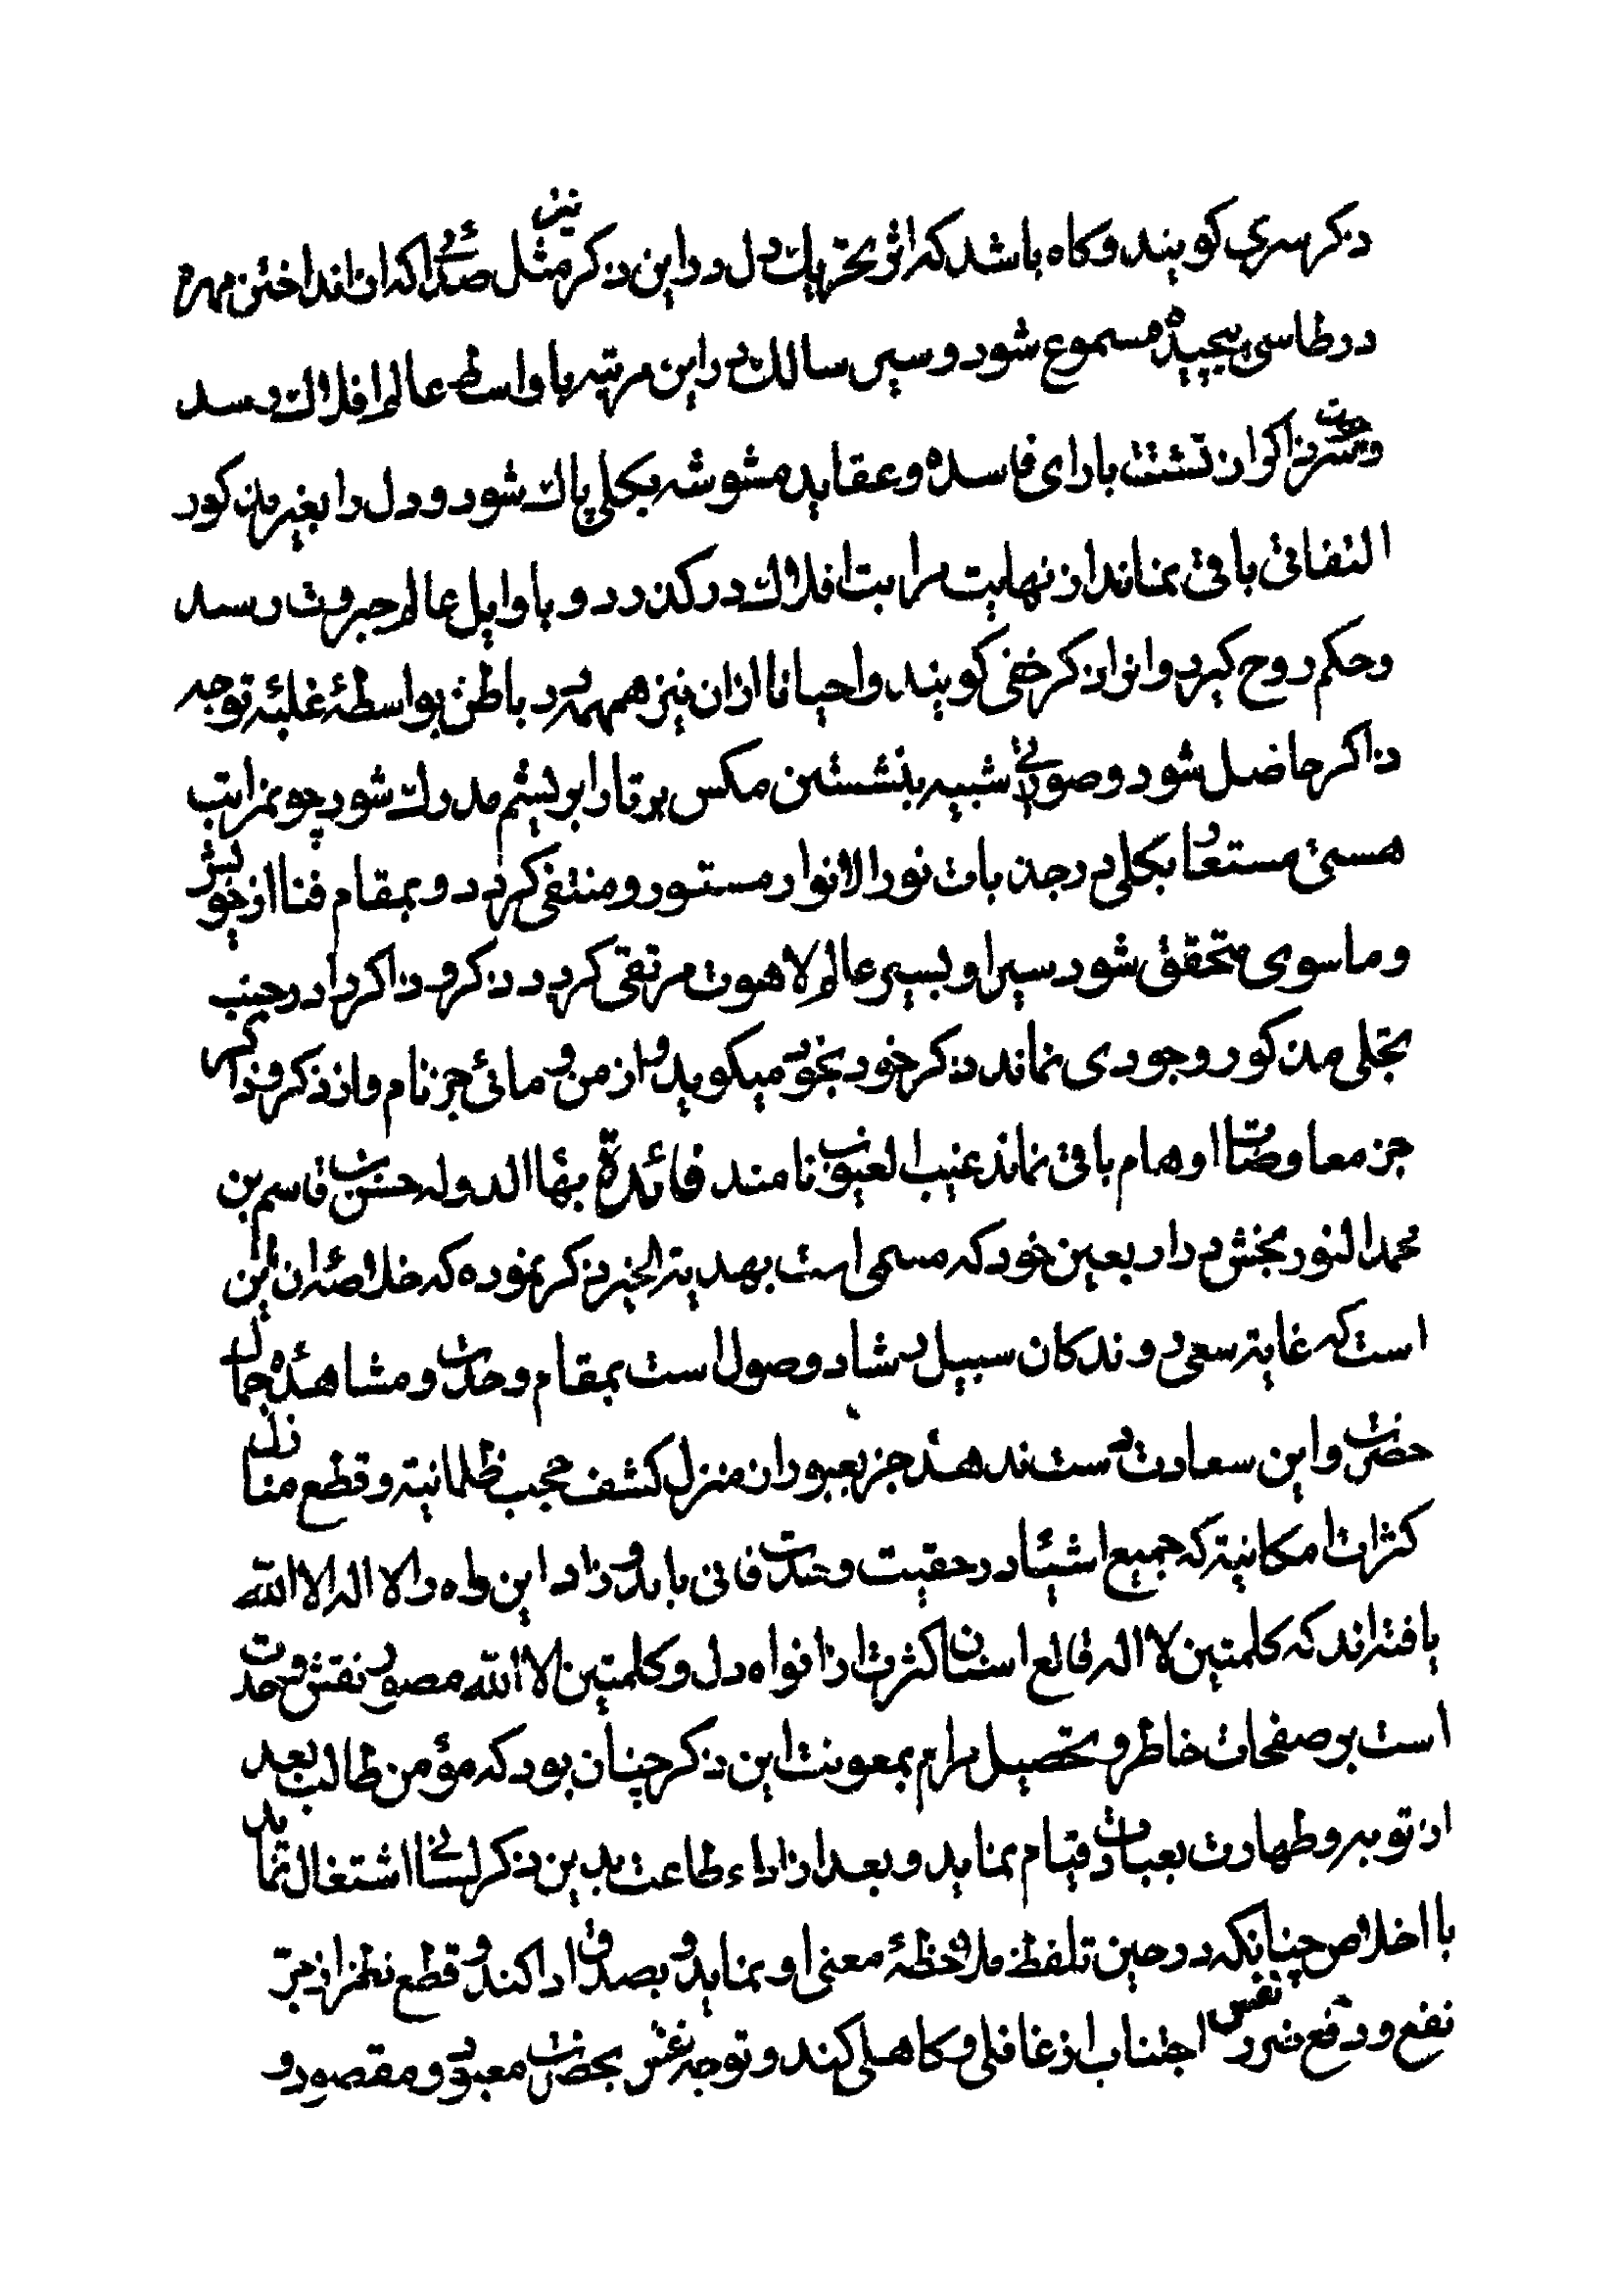 ذکر سری کویند و کاه باشد که اثر تحریك دل در این ذکر نیز مثل صدائی که از انداختن مهره
در طاسی پیچیده مسموع شود و سیر سالك در این مرتبه باواسط عالم افلاك رسد
و چون سر ذاکر از تشتت بارای فاسده و عقاید مشوشه بکلی پاك شود و دل را بغیر مذکور
التفاتی باقی نماند از نهایت مراتب افلاك درکذرد و باوایل عالم جبروت رسد
و حکم روح کیرد و انرا ذکر خفی کویند و احیانا ازان نیز همهمه در باطن بواسطهٔ غلبهٔ توجه
ذاکر حاصل شود و صوتی شبیه بنشستن مکس بر تار ابریشم مدرك شود چو بمراتب
هستی مستعار بکلی در جذبات نور الانوار مستور و منتفی کردد و بمقام فنا از خویش
و ماسوی متحقق شود سیر او بسیر عالم لاهوت مرتقی کردد ذکر و ذاکر را در جنب
تجلی مذکور وجودی نماند ذکر خود بخود میکوید و از من و مائی جز نام و از ذکر و ذاکر
جز معاوضات اوهام باقی نماند غیب الغیوب نامند فائدة بهاالدوله حسن بن قاسم بن
محمد النوربخش در اربعین خود که مسمی است بهدیة الخیر ذکر نموده که خلاصه ان این
است که غایة سعی روندکان سبیل رشاد وصول است بمقام وحدت و مشاهدهٔ جمال
حضرت و این سعادت دست ندهد جز بعبور از منزل کشف حجب ظلمانیة و قطع منازل
کثرات امکانیة که جمیع اشیئا در حقیت وحدت فانی یابد و زاد این راه را لا اله الا الله
یافته اند که کلمتین لا اله قالع اسنان کثرت از افواه دل و کلمتین الا الله مصور نقش وحدت
است بر صفحات خاطر و تحصیل مرام بمعونت این ذکر چنان بود که مؤمن طالب بعد
از توبه و طهارت بعبادت قیام نماید و بعد از اداء طاعت بدین ذکر لسانی اشتغال نماید
با اخلاص چنانکه در حین تلفظ ملاحظهٔ معنی او نماید و بصدق ادا کند و قطع نظر از جر
نفع و دفع ضرر نفس اجتناب از غافلی و کاهلی کند و توجه بحضرت معبود و مقصود و